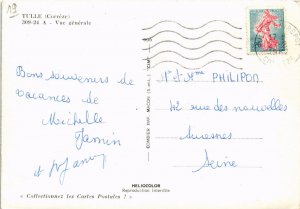 19
TULLE (Corrèze)
309-24 A - Vue générale
Bons souvenirs de
vacances de
Michelle
Jamin
et
Mr et Mme PHILIPON
42 rue des nouvelles
Suresnes
Seine
COMBIER IMP. MACON
HELIOCOLOR
Reproduction interdite
« Collectionnez les Cartes Postales ! »